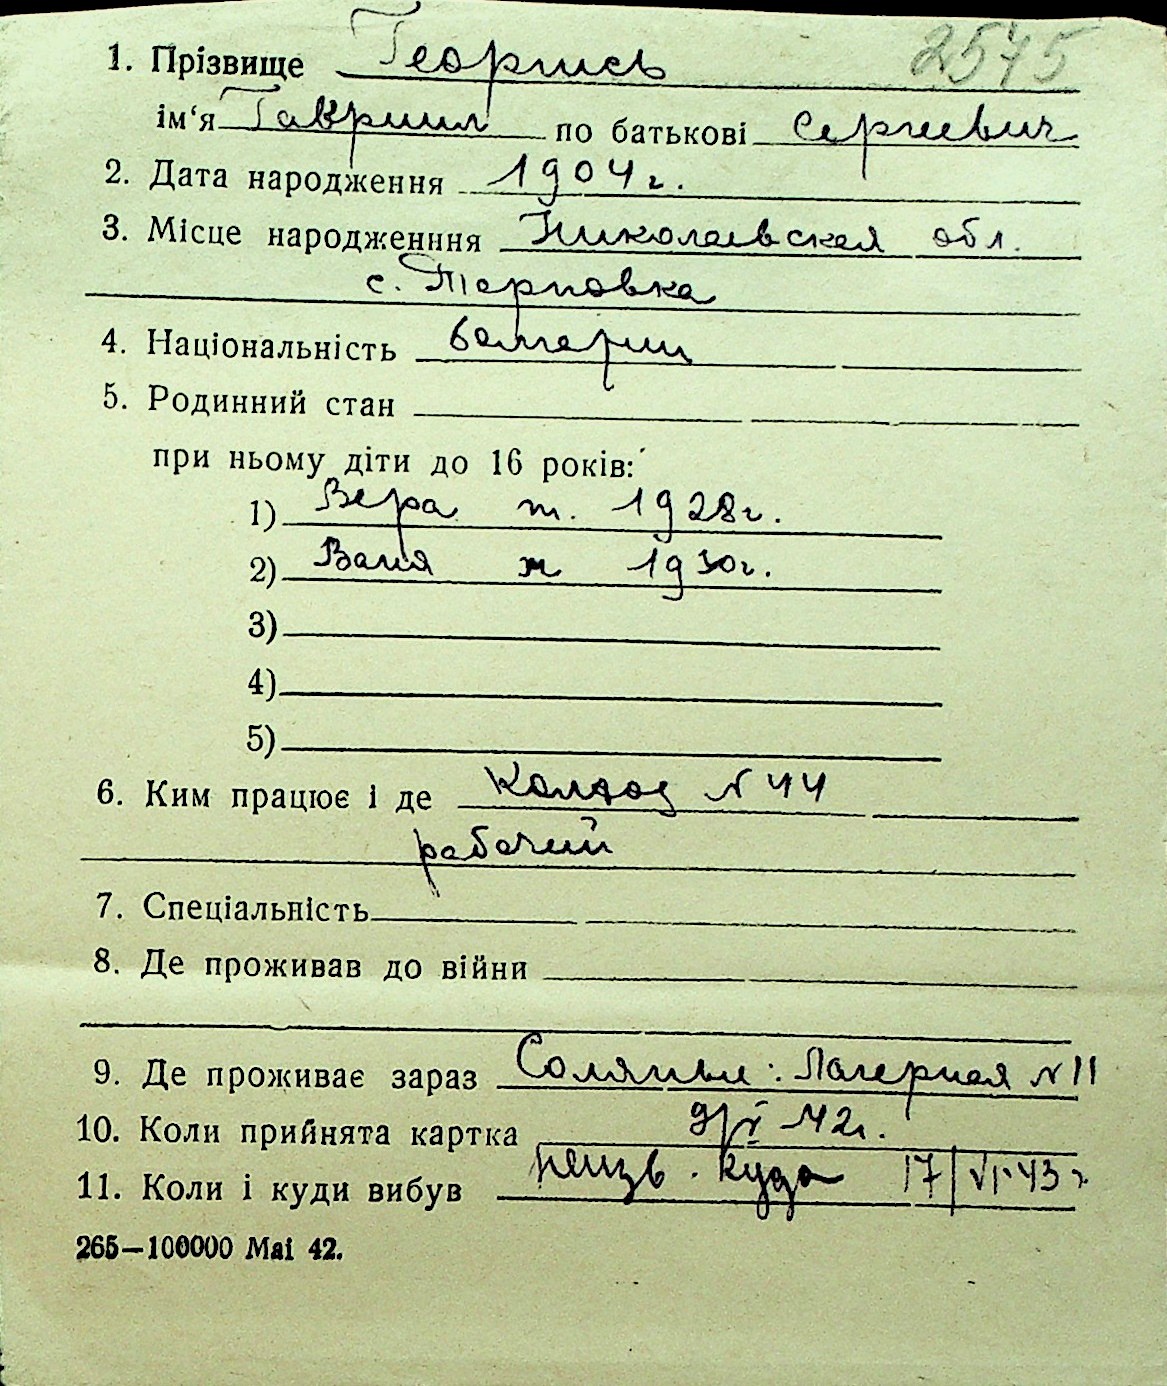 2575
1. Прізвище Георгиев
ім‘я Гавриил по батькові Сергиевич
2. Дата народження 1904 г.
3. Місце народженння Николаевская обл.
с. Терновка
4. Національність болгарин
5. Родинний стан
при ньому діти до 16 років:
1) Вера ж. 1928 г.
2) Ваня м 1930 г.
3)
4)
5)
6. Ким працює і де Колхоз N 44
рабочий
7. Спеціальність
8. Де проживав до війни
9. Де проживає зараз Соляные: Лагерная N 11
10. Коли прийнята картка 9/V 42 г.
11. Коли і куди вибув неизв. куда 17/VI-43 г.
265—100000 Mai 42.